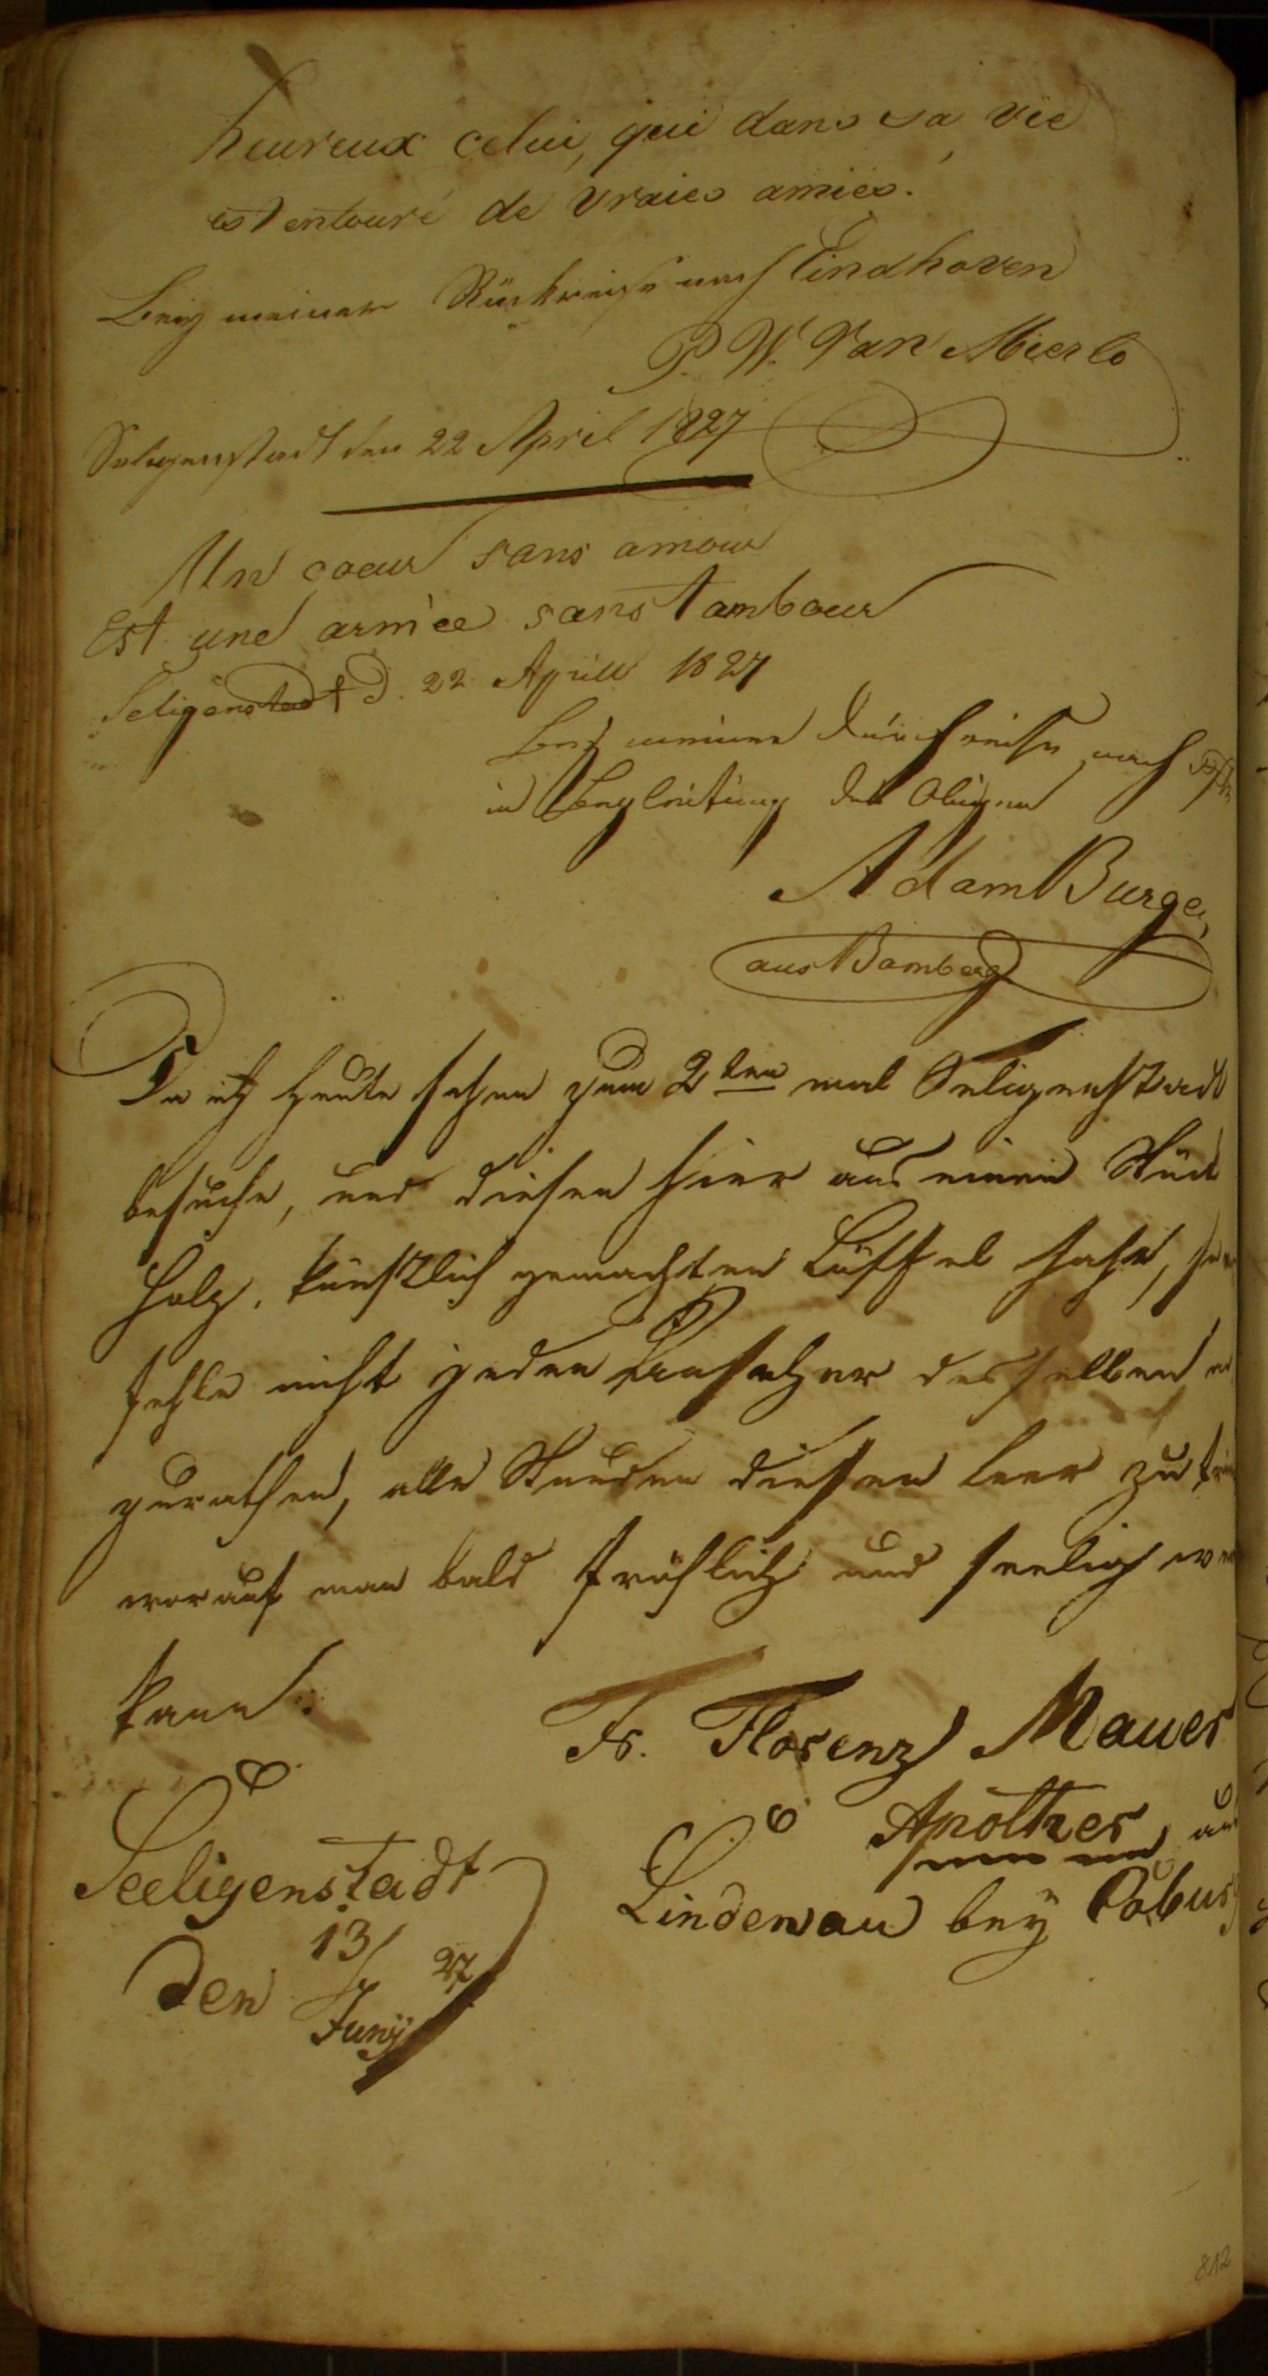 heureux celui, qui dans sa vie
est entouré de vraies amies.
Bey meiner Rückreise nach Eindhoven
P. W. Van Mierlo
Seligenstadt den 22 April 1827
Un coeur sans amour
Est une armée sans tambour
Seligenstadt d. 22 Aprill 1827
Bey meiner durchreise nach
in Begleitung des Obigen
Adam Burger
aus Bamberg
Da ich heute schon zum 2ten mal Seligenstadt
besuche, und diesen hier aus einem Stück
Holz, künstlich gemachten Löffel sahe, so
fehle nicht jeden Anseher desselben
zurathen, alle Stunden diesen leer zu
worauf man bald fröhlich und seelig
kann.
Fr. Florenz Mauer
Apotker aus
Seeligenstadt
Lindenau bey Coburg
den 13/ Juny 27
812